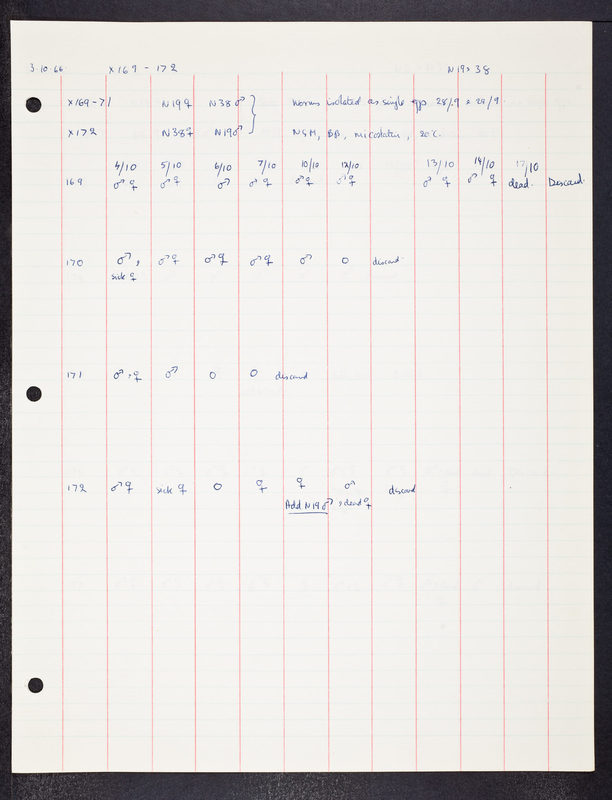 3.10.66. X169 - 172 N19 x 38
X169-71 N19♀ N38♂ } worms isolated as single eggs. 28/9 & 29/9.
X172 N38♀ N19♂ NGM, Bβ, microtiter, 20°C.
4/10 5/10 6/10 7/10 10/10 12/10 13/10 14/10 17/10
169 ♂♀ ♂♀ ♂ ♂♀ ♂♀ ♂♀ ♂♀ ♂♀ dead. Discard.
170 ♂, ♂♀ ♂♀ ♂♀ ♂ O discard.
sick ♀
171 ♂,♀ ♂ O O discard
172 ♂♀ sick ♀ O ♀ ♀ ♂ discard
Add N19♂ & dead ♀